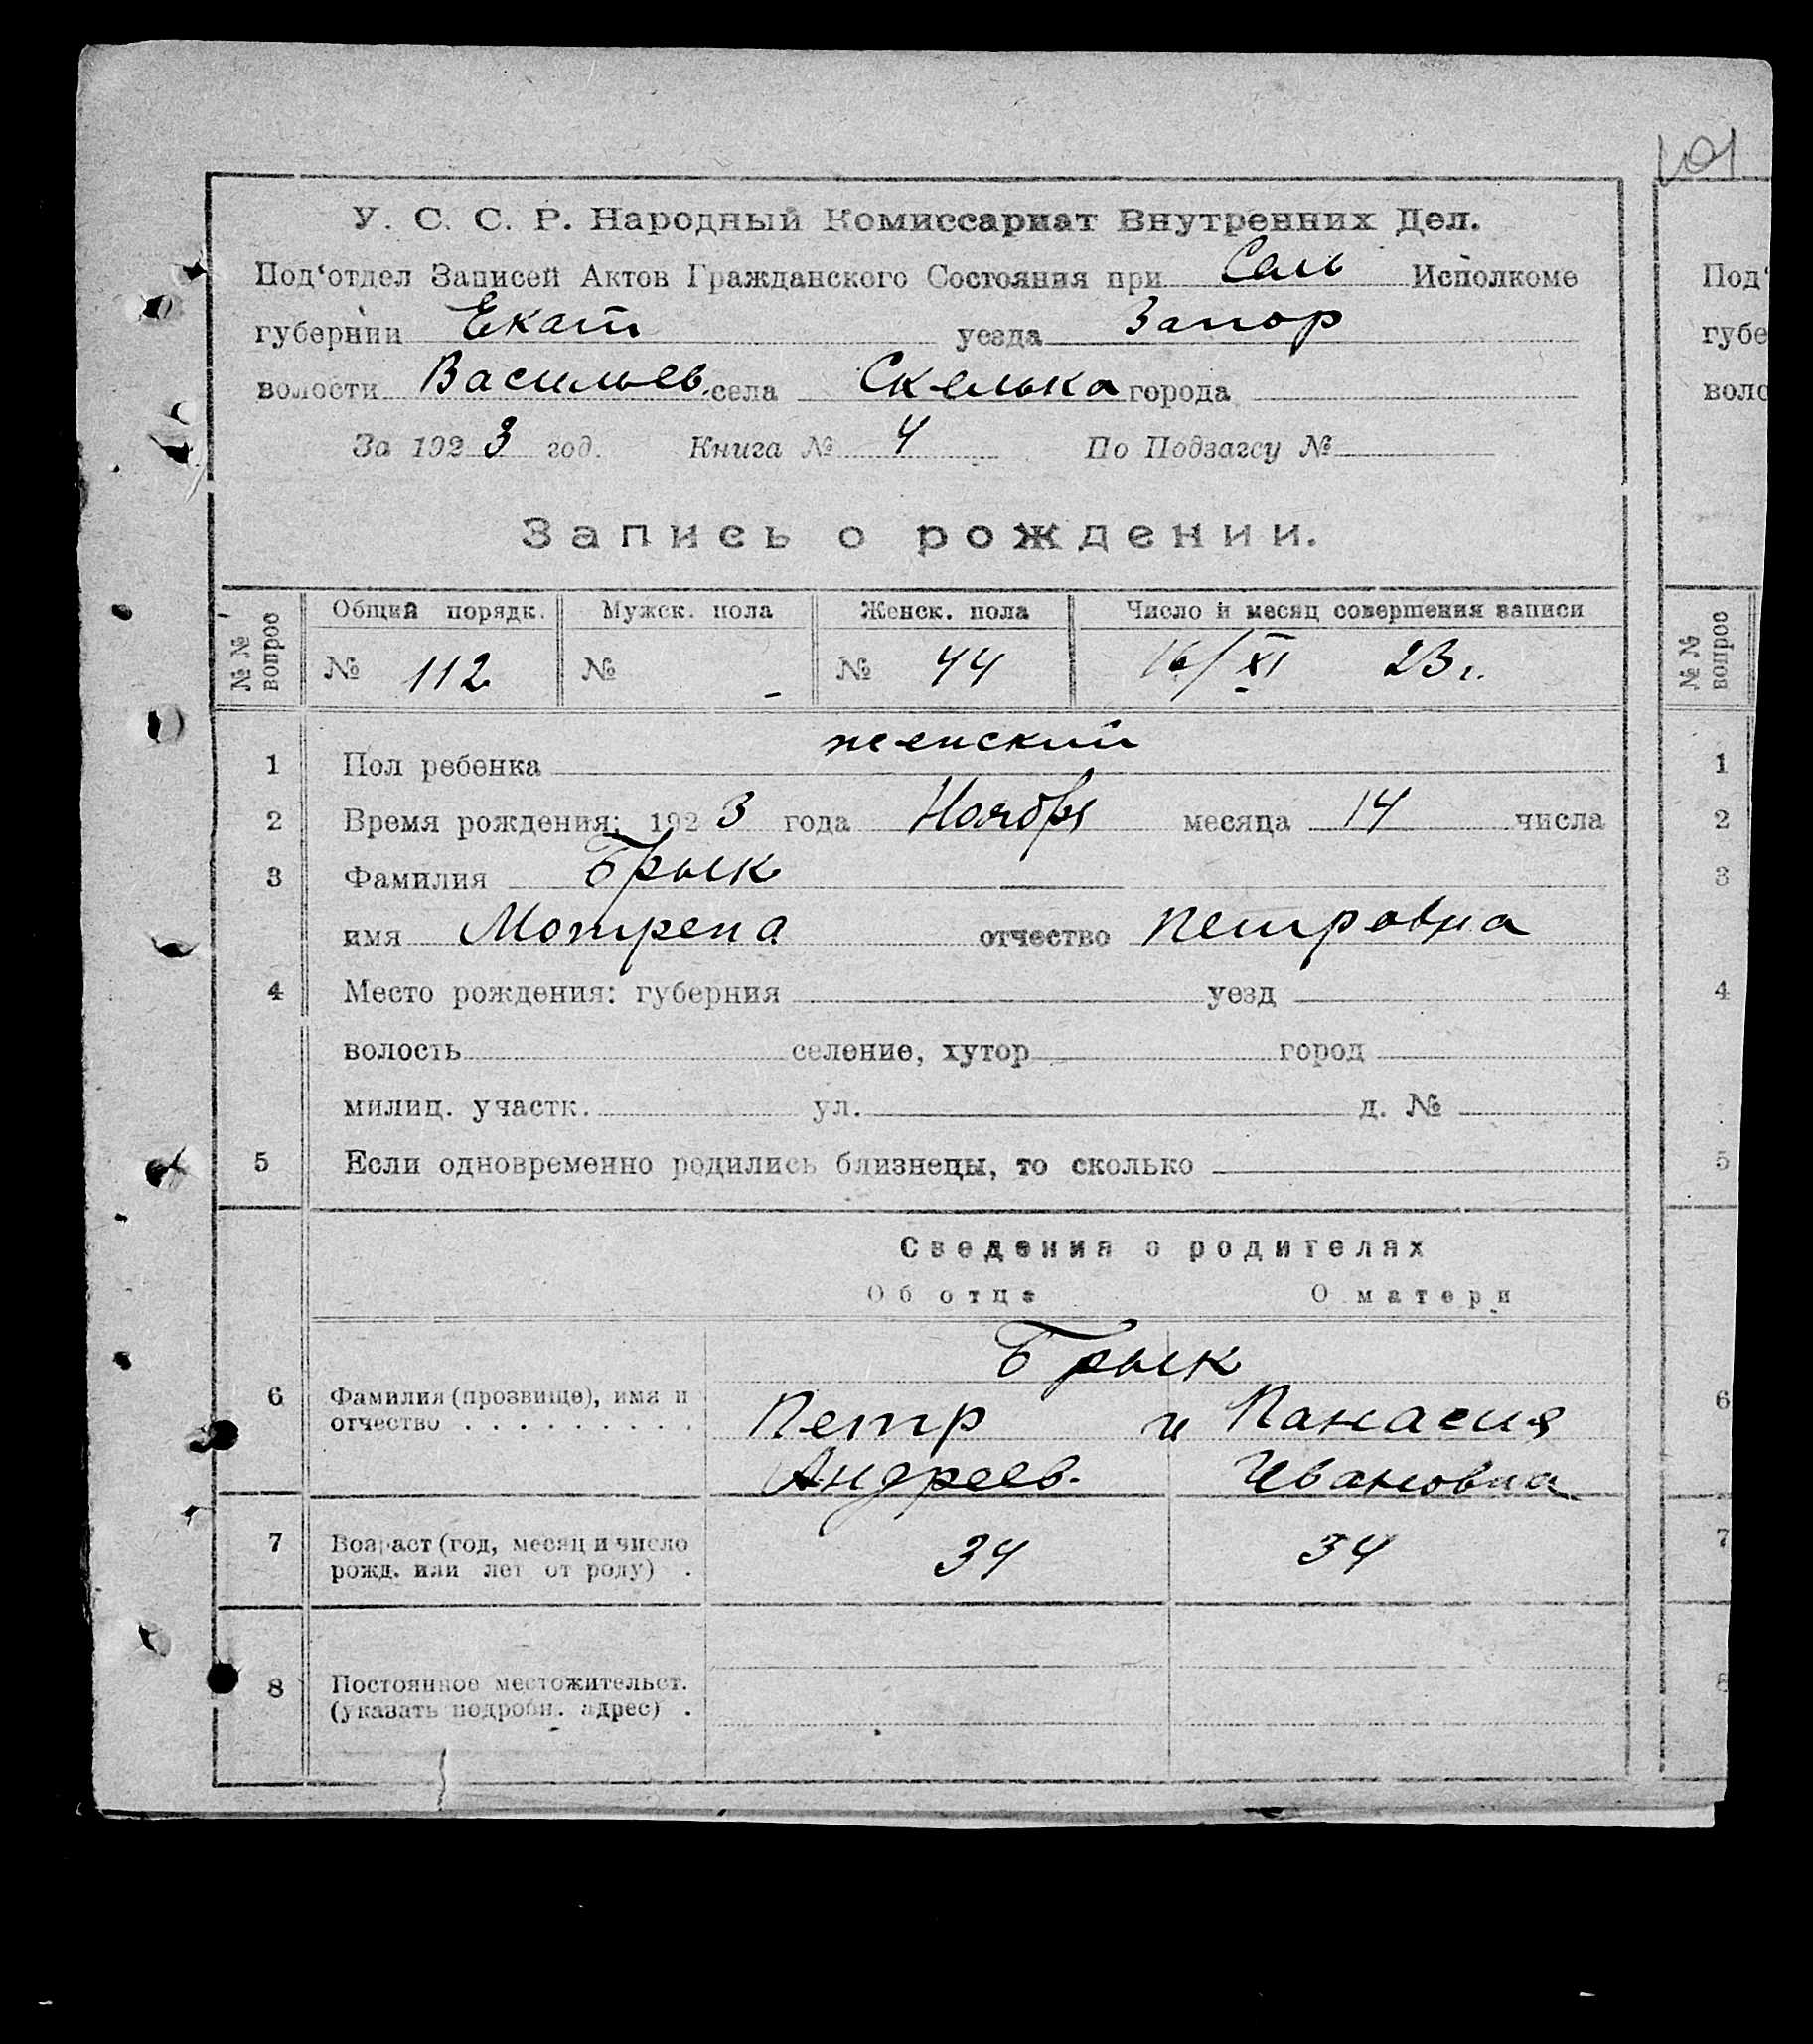 101
У. С. С. Р. Народный Комиссариат Внутренних Дел.
Под‘отдел Записей Актов Гражданского Состояния при Сель Исполкоме
губернии Екат уезда Запор
волости Васильев. села Скелька города
За 1923 год. Книга № 4 По Подзагсу №
Запись о рождении.
№№ вопрос Общий порядк. Мужск. пола Женск. пола Число и месяц совершения записи
№ 112 № - № 44 16/XI 23 г.
1 Пол ребенка женский
2 Время рождения: 1923 года Ноября месяца 14 числа
3 Фамилия Брык
имя Мотрена отчество Петровна
4 Место рождения: губерния уезд
волость селение, хутор город
милиц. участк. ул. д. №
5 Если одновременно родились близнецы, то сколько
Сведения о родителях
Об отце О матери
Брык
6 Фамилия (прозвище), имя и
отчество
Петр и Панасия
Андреев. Ивановна
7 Возраст (год, месяц и число
рожд. или лет от роду) . 34 34
8 Постоянное местожительст.
(указать подробн. адрес) .
Под‘
губе
воло
№№ вопрос
1
2
3
4
5
6
7
8